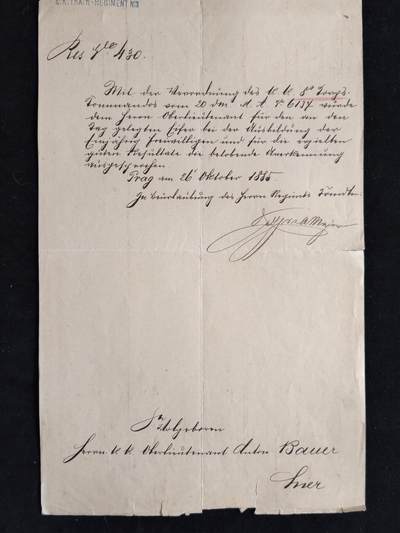 K.K. TRAIN-REGIMENT No 3
Res No 430.
Mit der Verordnung des k. k. 8t Corps-
Commandos vom 20 dM. M. A. No 6137 wurde
dem Herrn Oberlieutenant für den an den
Tag gelegten Eifer bei der Ausbildung der
Einjährig Freiwilligen und für die erzielten
guten Resultate die belobende Anerkennung
ausgesprochen
Prag am 26 Oktober 1885
In Beurlaubung des Herrn Regiments Comdten
Major
Sr Wolgeboren
Herrn k. k. Oberlieutenant Anton Bauer
hier